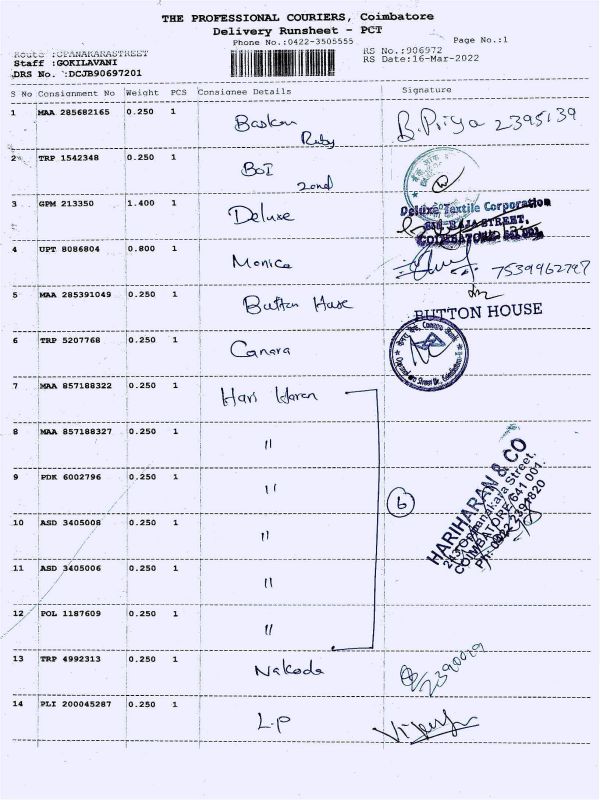 THE PROFESSIONAL COURIERS, Coimbatore
Delivery Runsheet - PCT
Phone No.:0422-3505555 Page No.:1
Route :OPANAKARASTREET RS No.:906972
Staff :GOKILAVANI RS Date:16-Mar-2022
DRS No. :DCJB90697201
S No Consignment No Weight PCS Consianee Details Signature
1 MAA 285682165 0.250 1 Baskar B. Priya 2395139
Ruby
2 TRP 1542348 0.250 1 BOI
zonal
3 GPM 213350 1.400 1 Deluxe Deluxe Textile Corporation
RAJA STREET,
COIMBATORE
4 UPT 8086804 0.800 1 Monica 7539962797
5 MAA 285391049 0.250 1 Button House
BUTTON HOUSE
6 TRP 5207768 0.250 1 Canara Canara Bank
7 MAA 857188322 0.250 1 Hari Haran
8 MAA 857188327 0.250 1 "
9 PDK 6002796 0.250 1 " 6
HARIHARAN & CO
243, Oppanakara Street,
COIMBATORE 641 001.
Ph: 0422 2391820
10 ASD 3405008 0.250 1 "
11 ASD 3405006 0.250 1 "
12 POL 1187609 0.250 1 "
13 TRP 4992313 0.250 1 Nakoda 2390029
14 PLI 200045287 0.250 1 L.p